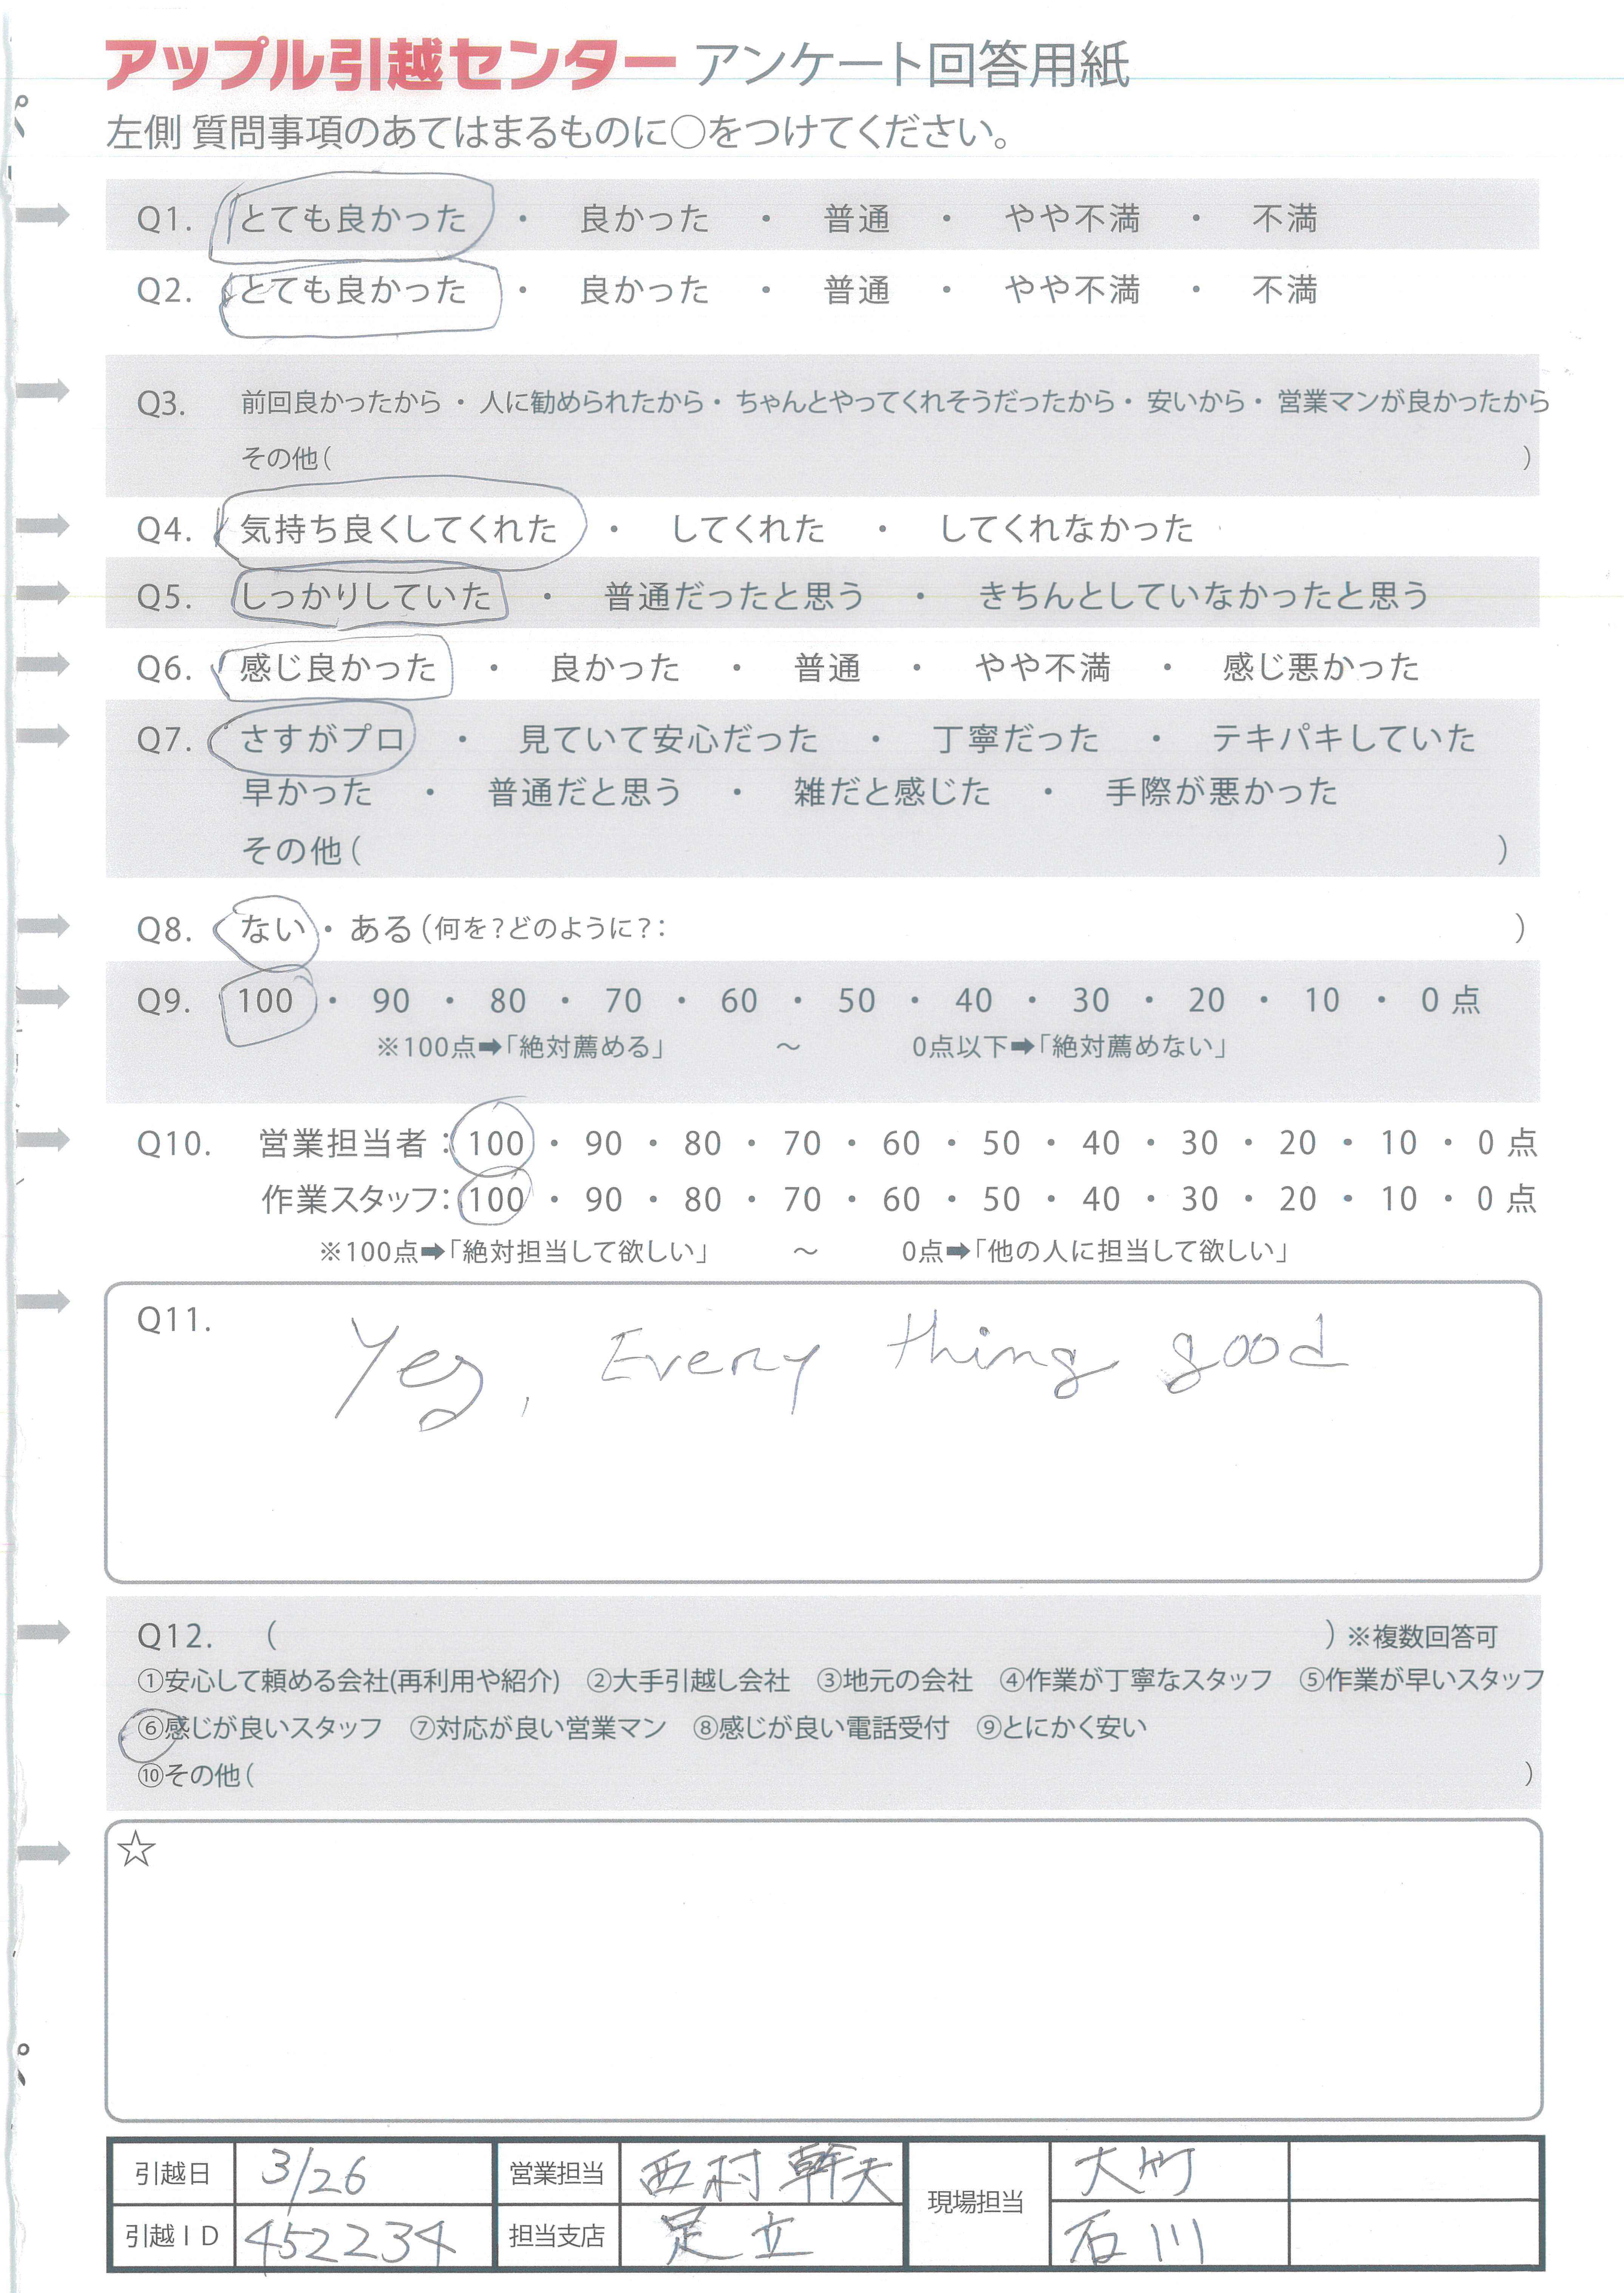 アップル引越センター アンケート回答用紙
左側 質問事項のあてはまるものに○をつけてください。
Q1. とても良かった ・ 良かった ・ 普通 ・ やや不満 ・ 不満
Q2. とても良かった ・ 良かった ・ 普通 ・ やや不満 ・ 不満
Q3. 前回良かったから ・ 人に勧められたから ・ ちゃんとやってくれそうだったから ・ 安いから ・ 営業マンが良かったから
その他( )
Q4. 気持ち良くしてくれた ・ してくれた ・ してくれなかった
Q5. しっかりしていた ・ 普通だったと思う ・ きちんとしていなかったと思う
Q6. 感じ良かった ・ 良かった ・ 普通 ・ やや不満 ・ 感じ悪かった
Q7. さすがプロ ・ 見ていて安心だった ・ 丁寧だった ・ テキパキしていた
早かった ・ 普通だと思う ・ 雑だと感じた ・ 手際が悪かった
その他( )
Q8. ない ・ ある(何を?どのように?: )
Q9. 100 ・ 90 ・ 80 ・ 70 ・ 60 ・ 50 ・ 40 ・ 30 ・ 20 ・ 10 ・ 0 点
※100点➡「絶対薦める」 ～ 0点以下➡「絶対薦めない」
Q10. 営業担当者：100 ・ 90 ・ 80 ・ 70 ・ 60 ・ 50 ・ 40 ・ 30 ・ 20 ・ 10 ・ 0 点
作業スタッフ：100 ・ 90 ・ 80 ・ 70 ・ 60 ・ 50 ・ 40 ・ 30 ・ 20 ・ 10 ・ 0 点
※100点➡「絶対担当して欲しい」 ～ 0点➡「他の人に担当して欲しい」
Q11. Yes, Every thing good
Q12. ( ) ※複数回答可
①安心して頼める会社(再利用や紹介) ②大手引越し会社 ③地元の会社 ④作業が丁寧なスタッフ ⑤作業が早いスタッフ
⑥感じが良いスタッフ ⑦対応が良い営業マン ⑧感じが良い電話受付 ⑨とにかく安い
⑩その他( )
☆
引越日 3/26 営業担当 西村 幹夫 現場担当 大竹
引越ID 452234 担当支店 足立 石川